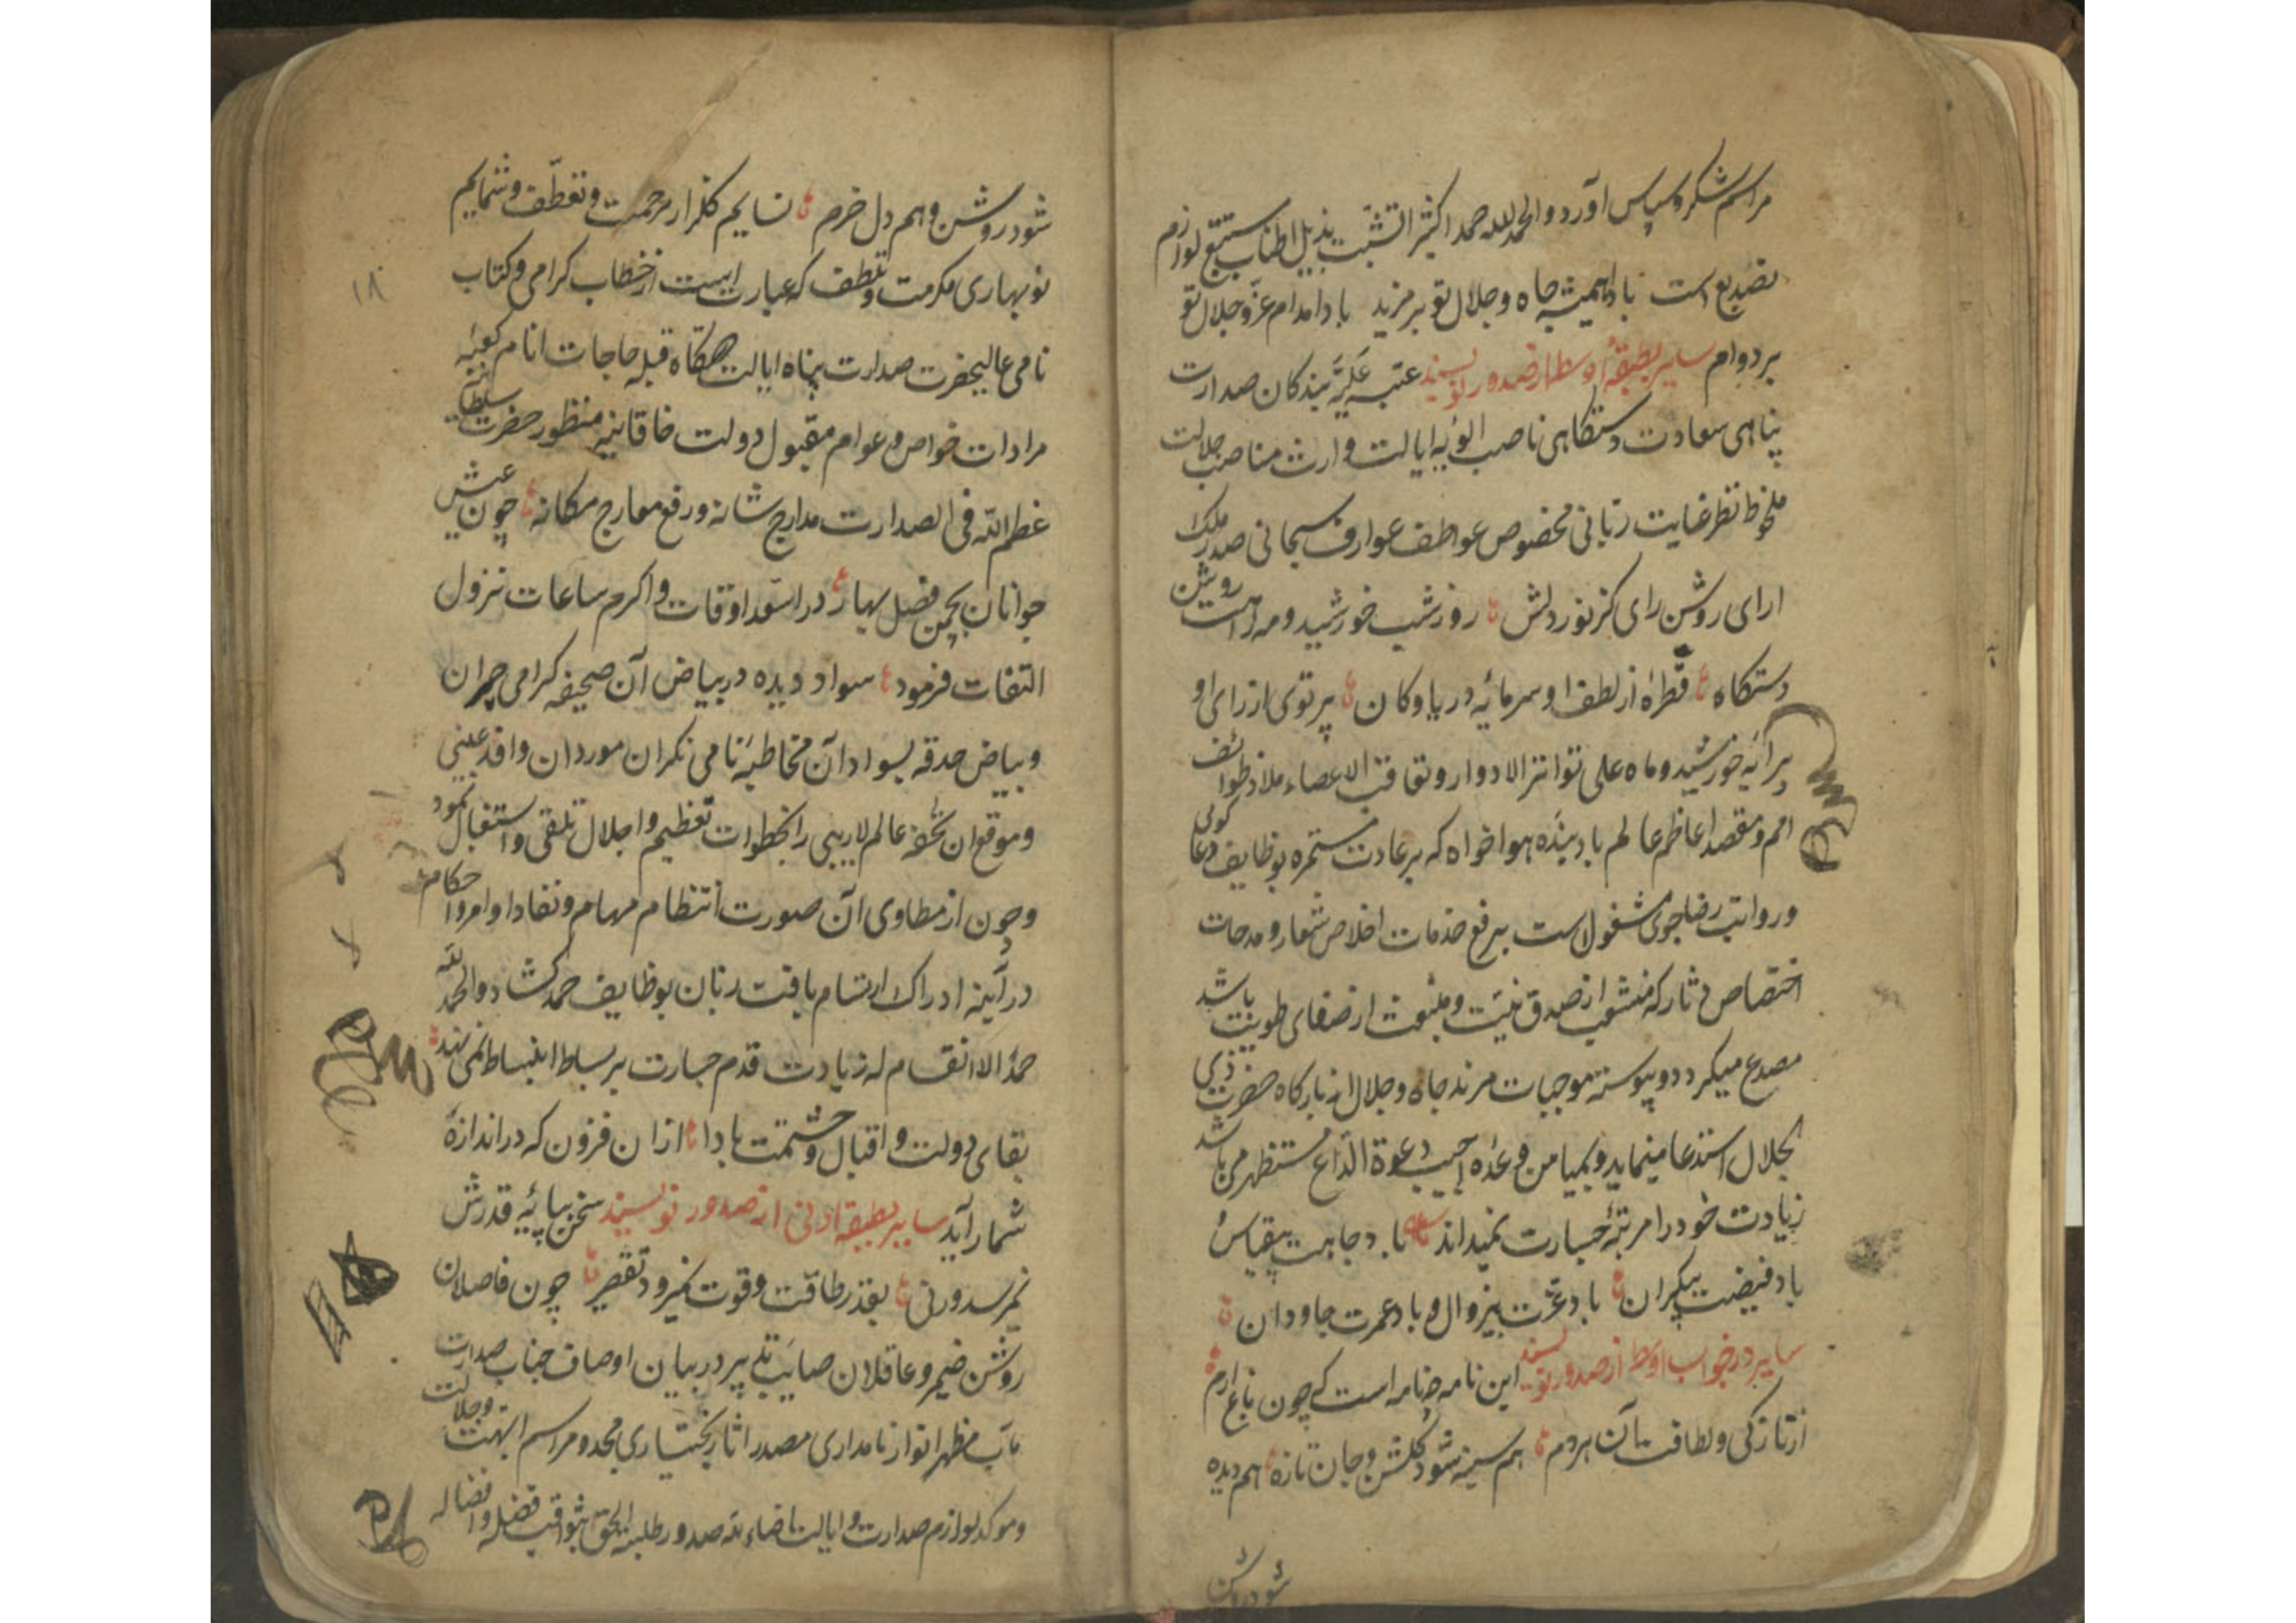 مراسم شکر و سپاس آورد و الحمدلله حمدا کثیرا تشبث بذیل اطناب مستتبع لوازم
تصدیع است بادا همیشه جاه و جلال تو بر مزید بادا مدام عز و جلال تو
بر دوام سایر بطبقهٔ اوسط از صدور نویسند عتبه علیّه بندکان صدارت
پناهی سعادت دستکاهی ناصب الویه ایالت وارث مناصب جلالت
ملحوظ نظر عنایت ربانی مخصوص عواطف عوارف سبحانی صدر ملک
ارای روشن رای کز نور دلش روز و شب خورشید و مه را هست روشن
دستکاه قطرهٔ از لطف او سرمایهٔ دریا و کان پرتوی از رای او
پیرایهٔ خورشید و ماه علی تواتر الادوار و تعاقب الاعصار ملاذ طوائف
امم و مقصد اعاظم عالم باد بندهٔ هواخواه که بر عادت مستمره بوظایف دعا کوئی
و رواتب رضاجوی مشغول است برفع خدمات اخلاص شعار و مدحات
اختصاص دثار که منشعب از صدق نیت و منبعث از صفای طویت باشد
مصدع میکردد و پیوسته موجبات مزید جاه و جلال از بارکاه حضرت ذی
الجلال استدعا مینماید و بمیامن وعده اجیب دعوة الداع مستظهر می باشد
زیادت خود را مرتبهٔ جسارت نمیداند باد جاهت بیقیاس و
باد فیضت بیکران باد عزت بیزوال و باد عمرت جاودان
سایر در جواب اوسط از صدور نویسند این نامه چه نامه است که چون باغ ارم
از تازکی و لطافت آن هر دم هم سینه شود کلشن و جان تازه هم دیده
شود روشن
۱۸
شود روشن و هم دل خرم نسایم کلزار مرحمت و تعطف و شمایم
نوبهاری مکرمت و تلطف که عبارتست از خطاب کرامی و کتاب
نامی عالیحضرت صدارت پناه ایالت دستکاه قبله حاجات انام کعبهٔ
مرادات خواص و عوام مقبول دولت خاقانیه منظور حضرت سلطانیه
عظم الله فی الصدارت مدارج شانه و رفع معارج مکانه چون عیش
جوانان بچمن فصل بهار در اسعد اوقات و اکرم ساعات نزول
التفات فرمود سواد دیده در بیاض آن صحیفه کرامی حیران
و بیاض حدقه بسواد آن مخاطبه نامی نکران مورد ان وافد غیبی
و موقع ان تحفه عالم لاریبی را بخطوات تعظیم و اجلال تلقی و استقبال نمود
و چون از مطاوی آن صورت انتظام مهام و نفاد اوامر و احکام
در آینه ادراک ارتسام یافت زبان بوظایف حمد کشاد و الحمد لله
حمدا لا انفصام له زیادت قدم جسارت بر بساط انبساط نمی نهد
بقای دولت و اقبال و حشمتت بادا ازان فزون که در اندازهٔ
شمار آید سایر بطبقه ادنی از صدور نویسند سخن بپایهٔ قدرش
نمیرسد ورنی بقدر طاقت و قوت نمیرود تقصیر چون فاضلان
روشن ضمیر و عاقلان صایب تدبیر در بیان اوصاف جناب صدارت
مآب مظهر انوار نامداری مصدر اثار بختیاری مجدد مراسم ابهت و جلالت
و موکد لوازم صدارت و ایالت اضاء الله صدور طلبة الحق بثواقب فضله و افضاله